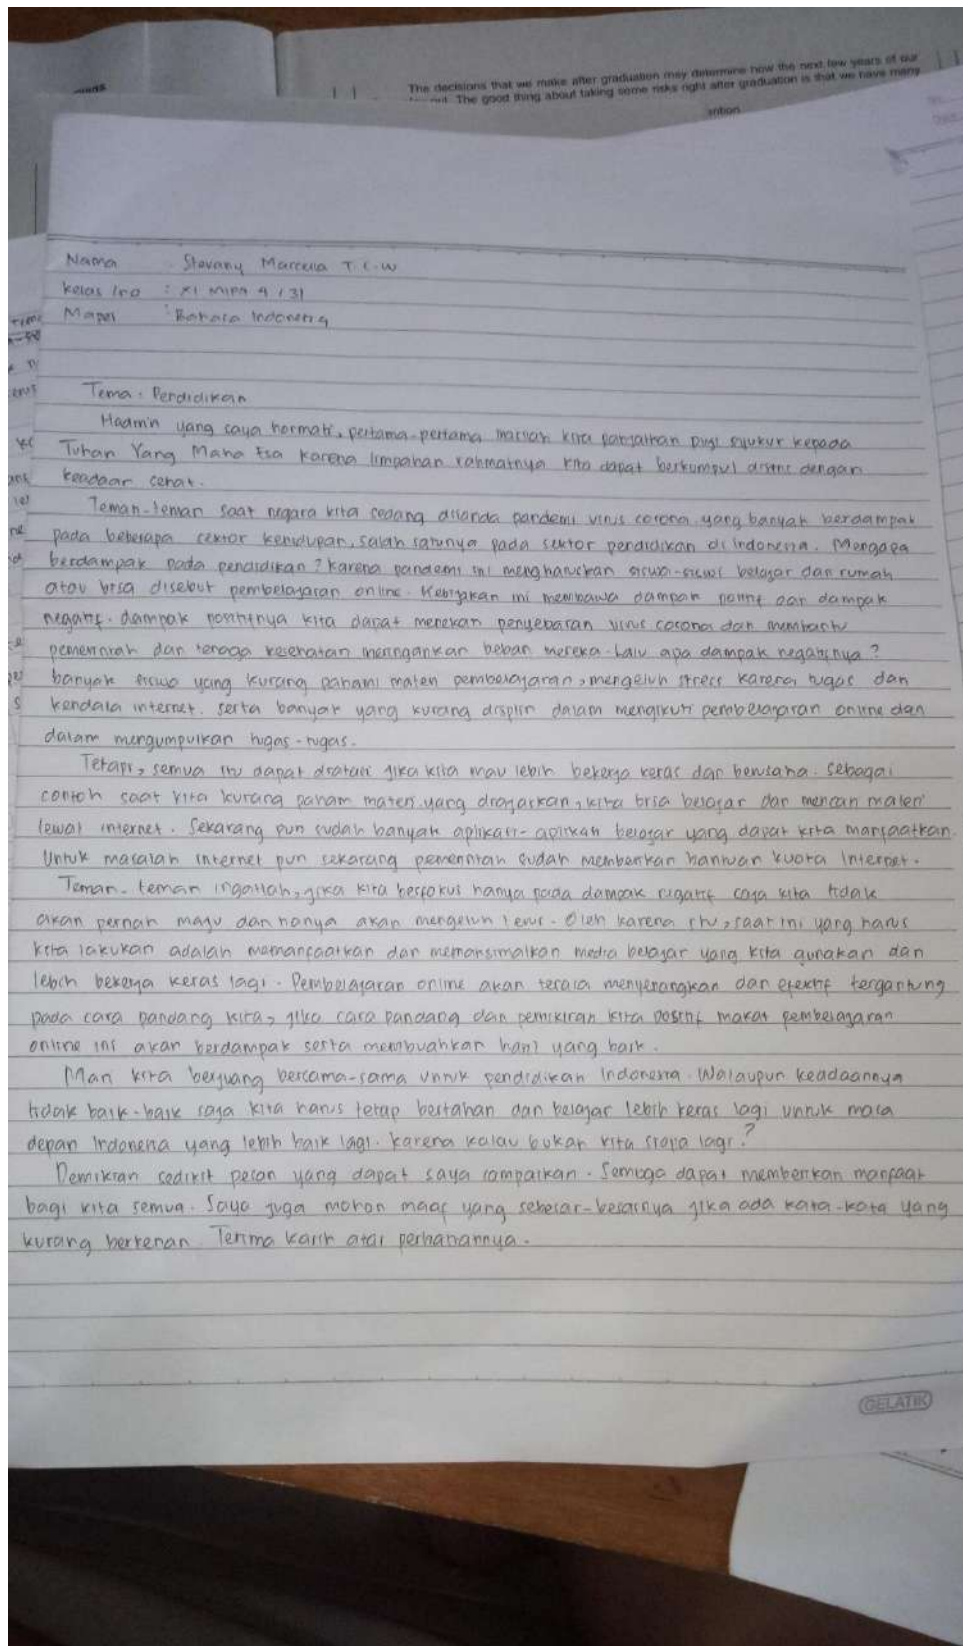 The decisions that we make after graduation may determine how the next few years of our
The good thing about taking some risks right after graduation is that we have many
Nama : Stevany Marcella T.C.W
Kelas / no : XI MIPA 4 / 31
Mapel : Bahasa Indonesia
Tema : Pendidikan
Hadirin yang saya hormati, pertama-pertama marilah kita panjatkan puji syukur kepada
Tuhan Yang Maha Esa karena limpahan rahmatnya kita dapat berkumpul disini dengan
keadaan sehat.
Teman-teman saat negara kita sedang dilanda pandemi virus corona yang banyak berdampak
pada beberapa sektor kehidupan, salah satunya pada sektor pendidikan di Indonesia. Mengapa
berdampak pada pendidikan? karena pandemi ini mengharuskan siswa-siswi belajar dari rumah
atau bisa disebut pembelajaran online. Kebijakan ini membawa dampak positif dan dampak
negatif. dampak positifnya kita dapat menekan penyebaran virus corona dan membantu
pemerintah dan tenaga kesehatan meringankan beban mereka. Lalu apa dampak negatifnya?
banyak siswa yang kurang pahami materi pembelajaran, mengeluh stress karena tugas dan
kendala internet. serta banyak yang kurang disiplin dalam mengikuti pembelajaran online dan
dalam mengumpulkan tugas-tugas.
Tetapi, semua itu dapat diatasi jika kita mau lebih bekerja keras dan berusaha. Sebagai
contoh saat kita kurang paham materi yang diajarkan, kita bisa belajar dan mencari materi
lewat internet. Sekarang pun sudah banyak aplikasi-aplikasi belajar yang dapat kita manfaatkan.
Untuk masalah internet pun sekarang pemerintah sudah memberikan bantuan kuota Internet.
Teman-teman ingatlah, jika kita berfokus hanya pada dampak negatif saja kita tidak
akan pernah maju dan hanya akan mengeluh terus. Oleh karena itu, saat ini yang harus
kita lakukan adalah memanfaatkan dan memaksimalkan media belajar yang kita gunakan dan
lebih bekerja keras lagi. Pembelajaran online akan terasa menyenangkan dan efektif tergantung
pada cara pandang kita, jika cara pandang dan pemikiran kita positif maka pembelajaran
online ini akan berdampak serta membuahkan hasil yang baik.
Mari kita berjuang bersama-sama untuk pendidikan Indonesia. Walaupun keadaannya
tidak baik-baik saja kita harus tetap bertahan dan belajar lebih keras lagi untuk masa
depan Indonesia yang lebih baik lagi. karena kalau bukan kita siapa lagi?
Demikian sedikit pesan yang dapat saya sampaikan. Semoga dapat memberikan manfaat
bagi kita semua. Saya juga mohon maaf yang sebesar-besarnya jika ada kata-kata yang
kurang berkenan. Terima kasih atas perhatiannya.
GELATIK